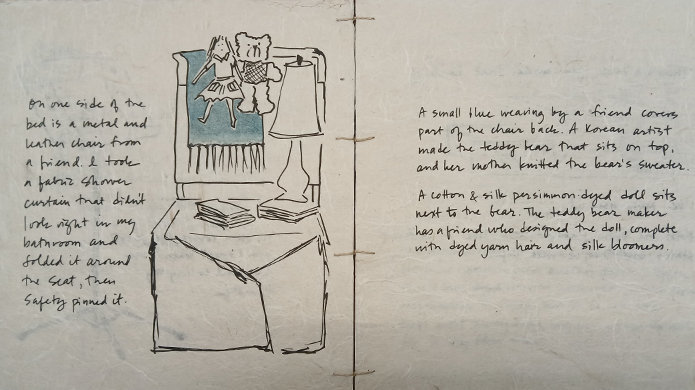 On one side of the
bed is a metal and
leather chair from
a friend. I took
a fabric shower
curtain that didn't
look right in my
bathroom and
folded it around
the seat, then
safety pinned it.
A small blue weaving by a friend covers
part of the chair back. A Korean artist
made the teddy bear that sits on top,
and her mother knitted the bear's sweater.
A cotton & silk persimmon-dyed doll sits
next to the bear. The teddy bear maker
has a friend who designed the doll, complete
with dyed yarn hair and silk bloomers.